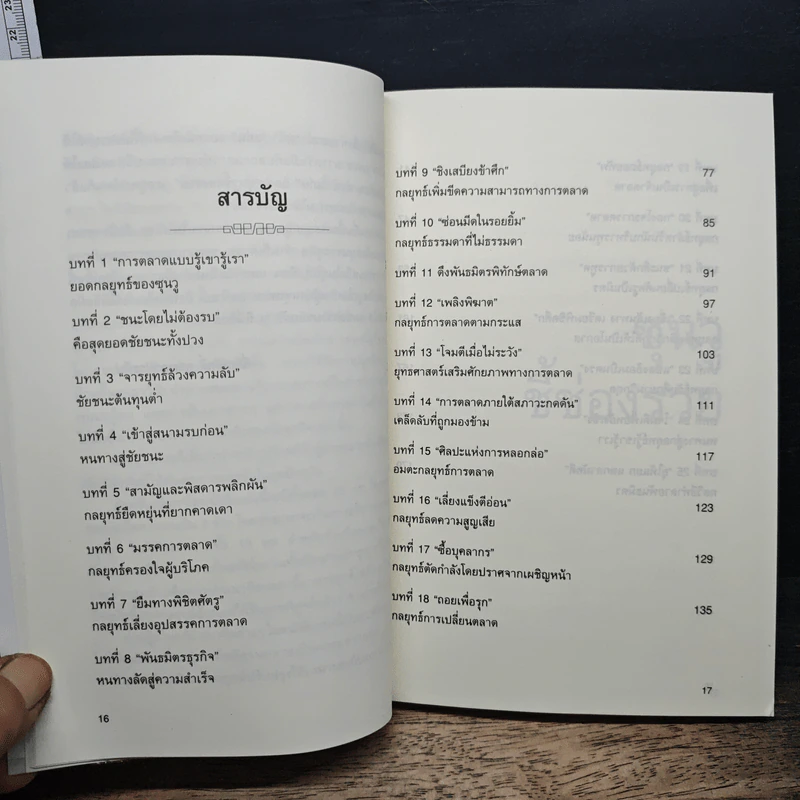 สารบัญ
บทที่ 1 "การตลาดแบบรู้เขารู้เรา"
ยอดกลยุทธ์ของซุนวู
บทที่ 2 "ชนะโดยไม่ต้องรบ"
คือสุดยอดชัยชนะทั้งปวง
บทที่ 3 "จารยุทธ์ล้วงความลับ"
ชัยชนะต้นทุนต่ำ
บทที่ 4 "เข้าสู่สนามรบก่อน"
หนทางสู่ชัยชนะ
บทที่ 5 "สามัญและพิสดารพลิกผัน"
กลยุทธ์ยืดหยุ่นที่ยากคาดเดา
บทที่ 6 "มรรคการตลาด"
กลยุทธ์ครองใจผู้บริโภค
บทที่ 7 "ยืมทางพิชิตศัตรู"
กลยุทธ์เลี่ยงอุปสรรคการตลาด
บทที่ 8 "พันธมิตรธุรกิจ"
หนทางลัดสู่ความสำเร็จ
16
บทที่ 9 "ชิงเสบียงข้าศึก" 77
กลยุทธ์เพิ่มขีดความสามารถทางการตลาด
บทที่ 10 "ซ่อนมีดในรอยยิ้ม" 85
กลยุทธ์ธรรมดาที่ไม่ธรรมดา
บทที่ 11 ดึงพันธมิตรพิทักษ์ตลาด 91
บทที่ 12 "เพลิงพิฆาต" 97
กลยุทธ์การตลาดตามกระแส
บทที่ 13 "โจมตีเมื่อไม่ระวัง" 103
ยุทธศาสตร์เสริมศักยภาพทางการตลาด
บทที่ 14 "การตลาดภายใต้สภาวะกดดัน" 111
เคล็ดลับที่ถูกมองข้าม
บทที่ 15 "ศิลปะแห่งการหลอกล่อ" 117
อมตะกลยุทธ์การตลาด
บทที่ 16 "เลี่ยงแข็งตีอ่อน" 123
กลยุทธ์ลดความสูญเสีย
บทที่ 17 "ซื้อบุคลากร" 129
กลยุทธ์ตัดกำลังโดยปราศจากเผชิญหน้า
บทที่ 18 "ถอยเพื่อรุก" 135
กลยุทธ์การเปลี่ยนตลาด
17
22
23